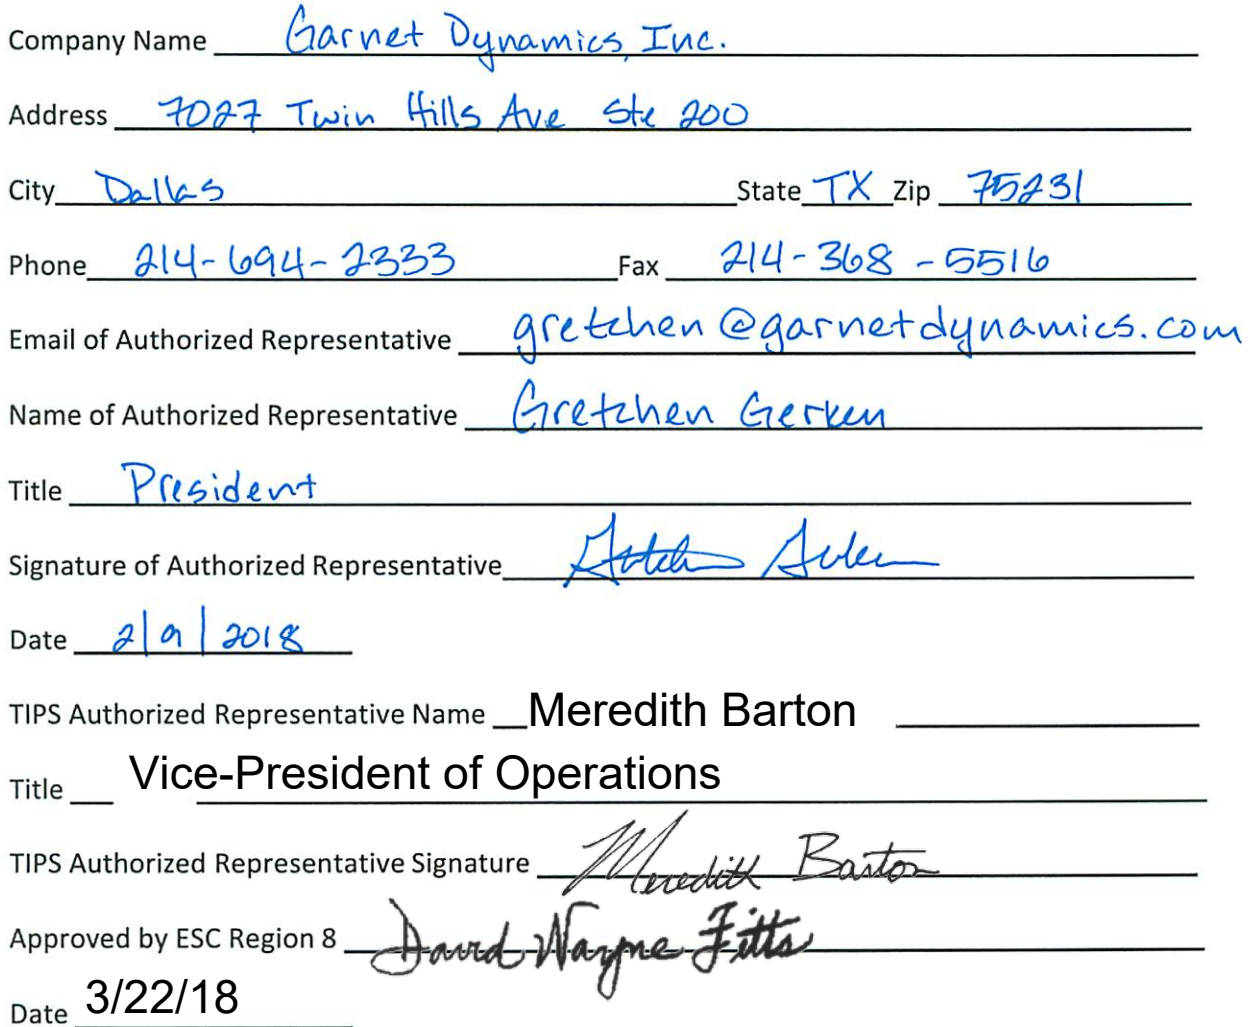 Company Name Garnet Dynamics, Inc.
Address 7027 Twin Hills Ave Ste 200
City Dallas State TX Zip 75231
Phone 214-694-2333 Fax 214-368-5516
Email of Authorized Representative gretchen@garnetdynamics.com
Name of Authorized Representative Gretchen Gerken
Title President
Signature of Authorized Representative
Date 2/9/2018
TIPS Authorized Representative Name Meredith Barton
Title Vice-President of Operations
TIPS Authorized Representative Signature Meredith Barton
Approved by ESC Region 8 David Wayne Fitts
Date 3/22/18